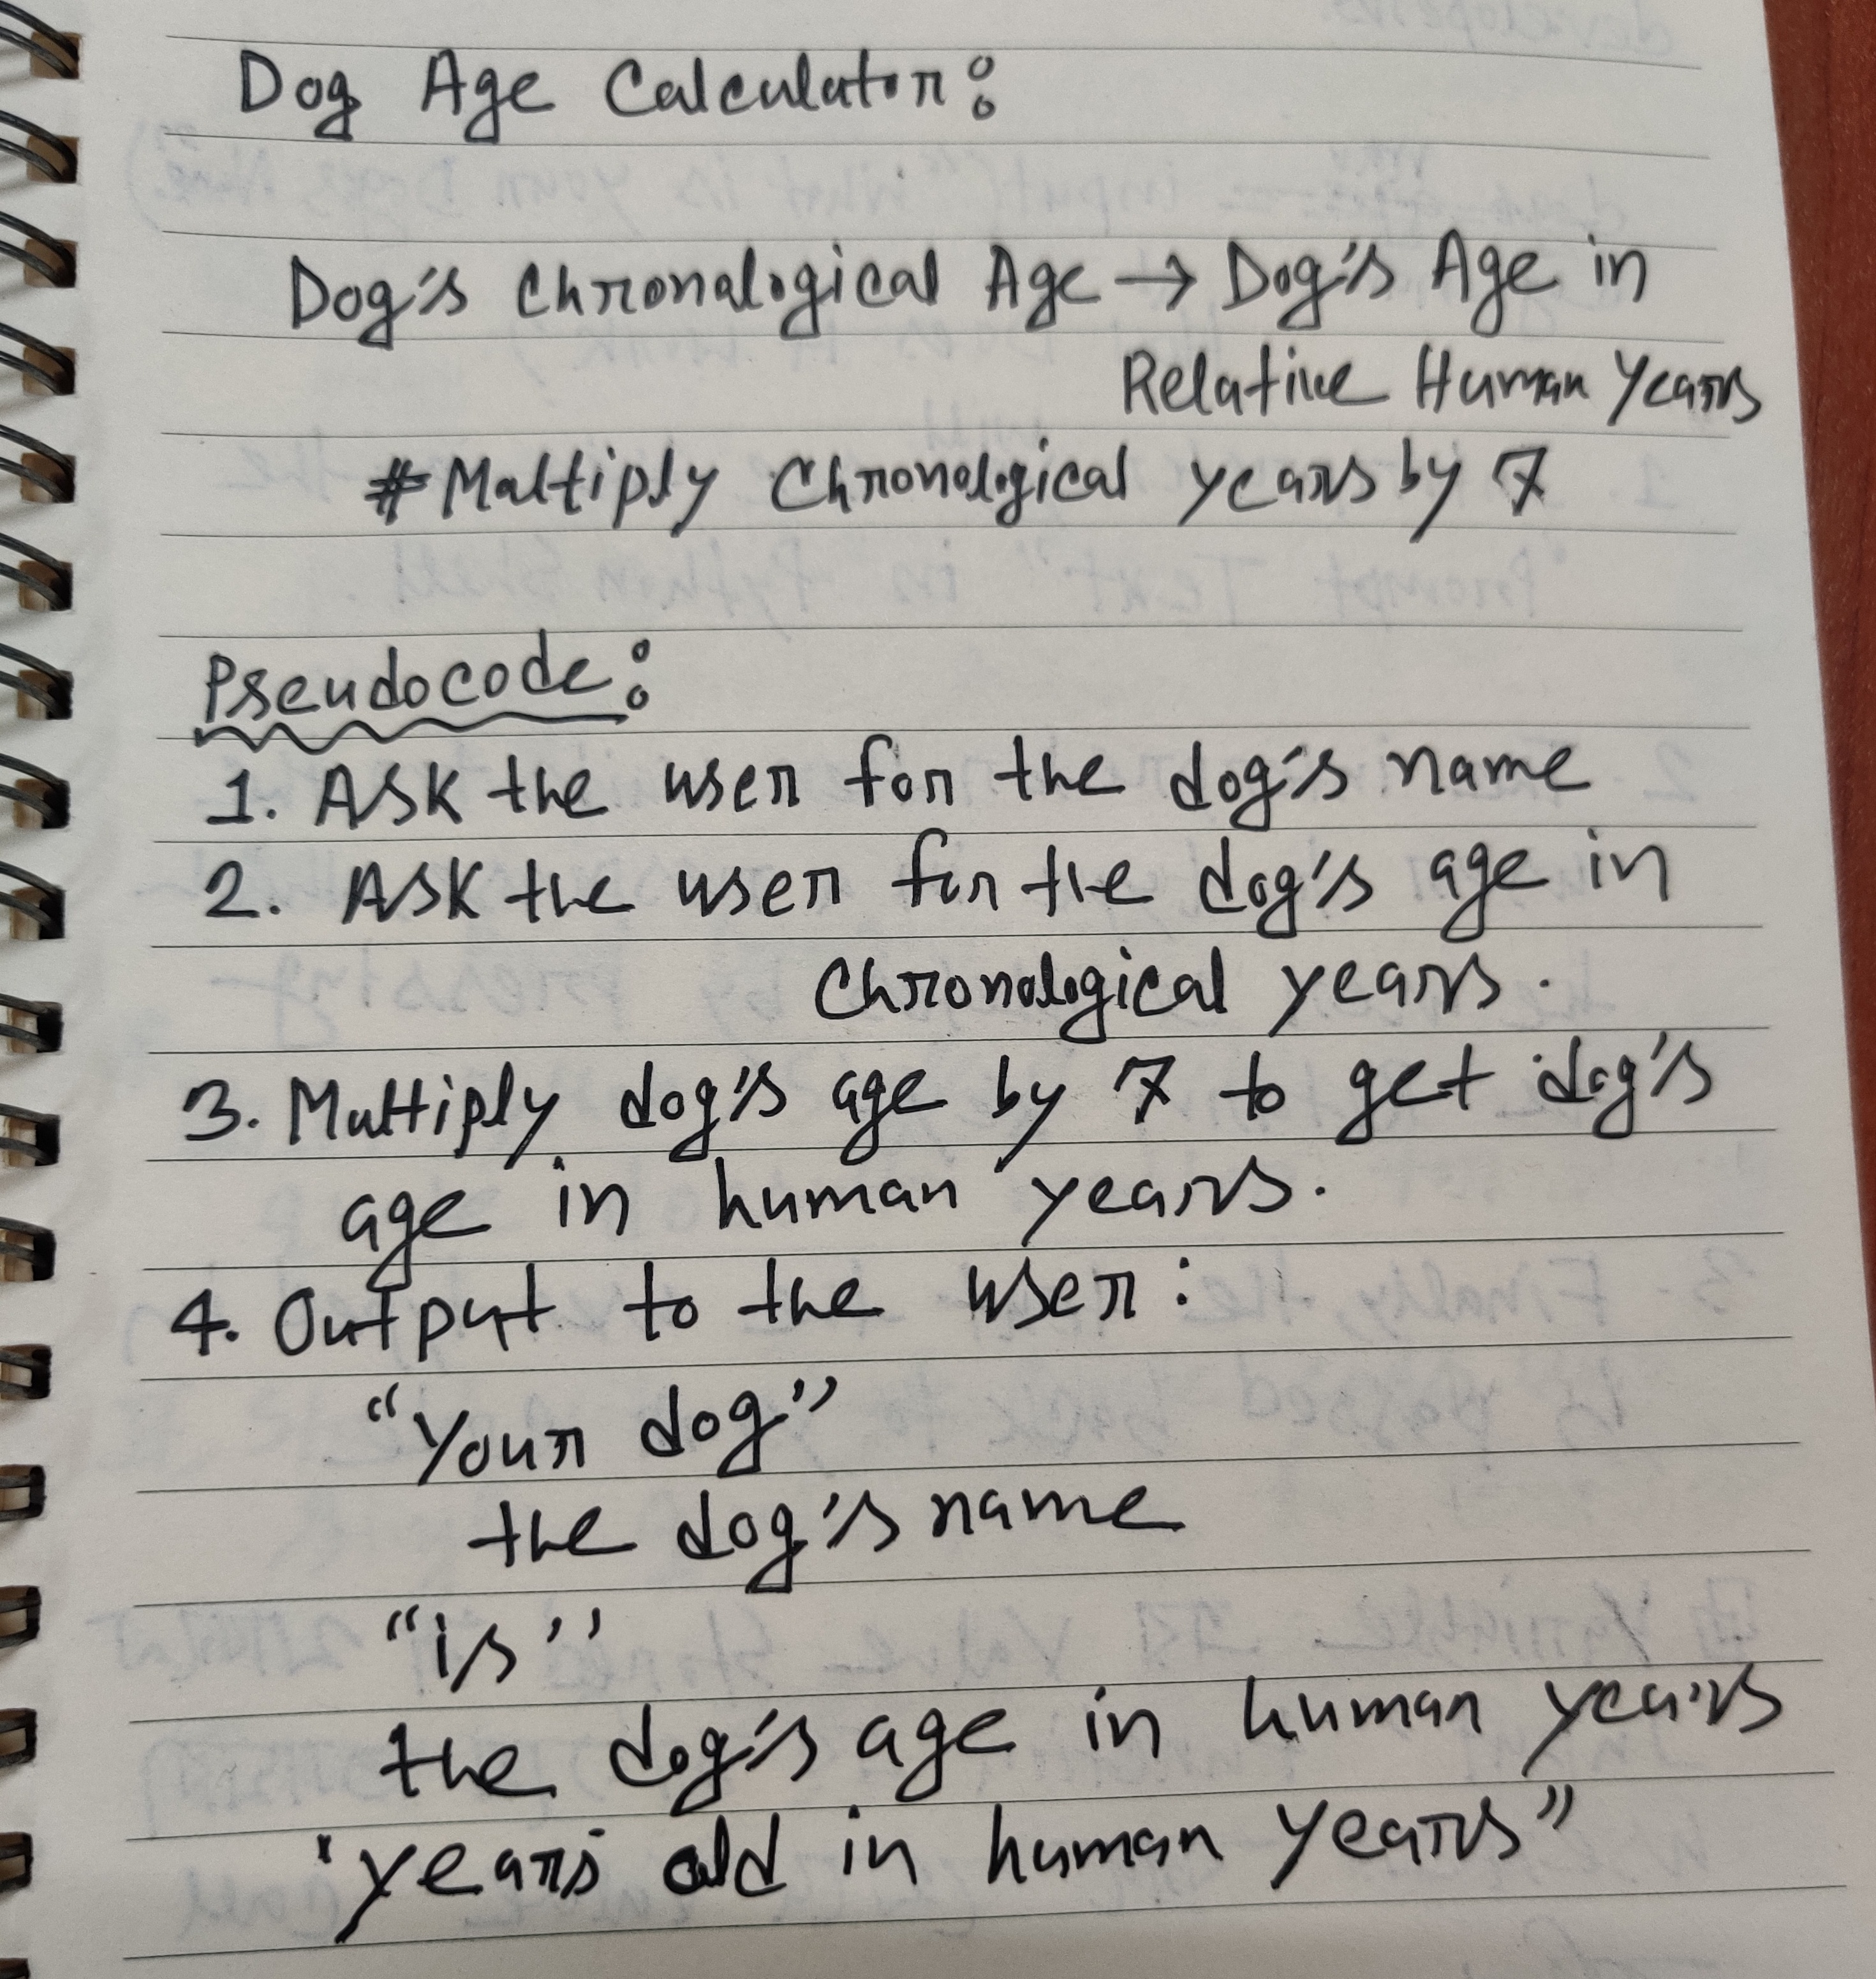 Dog Age Calculator:
Dog's Chronological Age → Dog's Age in
Relative Human Years
# Multiply Chronological years by 7
Pseudocode:
1. Ask the user for the dog's name
2. Ask the user for the dog's age in
Chronological years.
3. Multiply dog's age by 7 to get dog's
age in human years.
4. Output to the user:
"Your dog"
the dog's name
"is"
the dog's age in human years
"years old in human years"